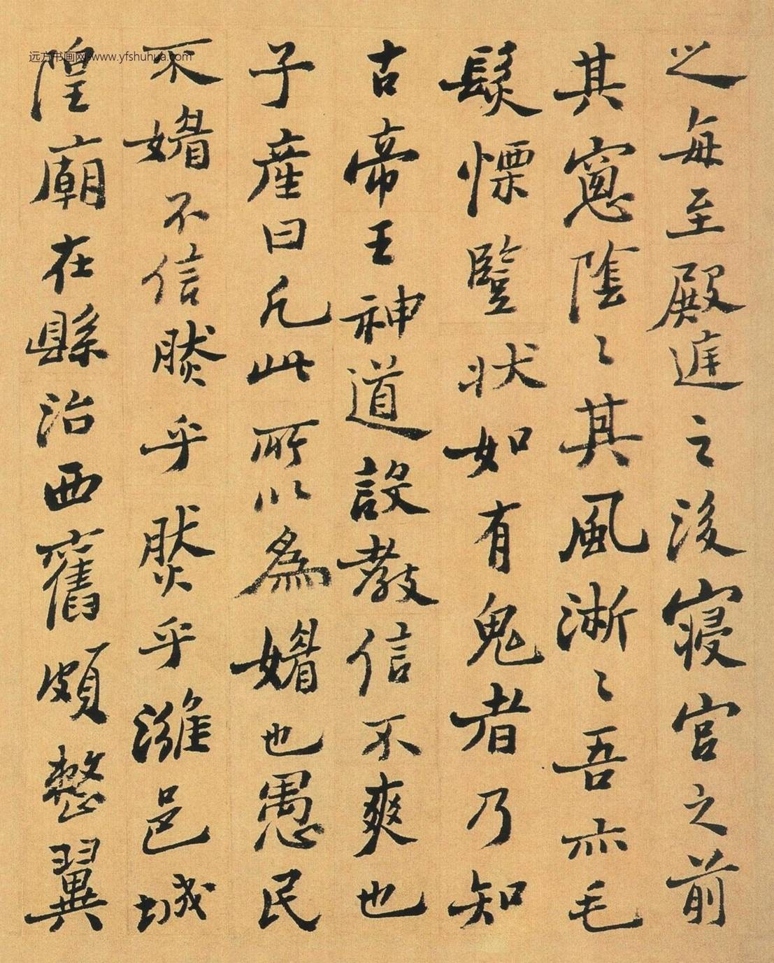 之每至殿庭之後寝宮之前
其窻陰〻其風淅〻吾亦毛
髮慄竪狀如有鬼者乃知
古帝王神道設教信不爽也
子產曰凡此所以為媚也愚民
不媚不信然乎然乎濰邑城
隍廟在縣治西舊頗整翼
远方书画网 www.yfshuhua.com